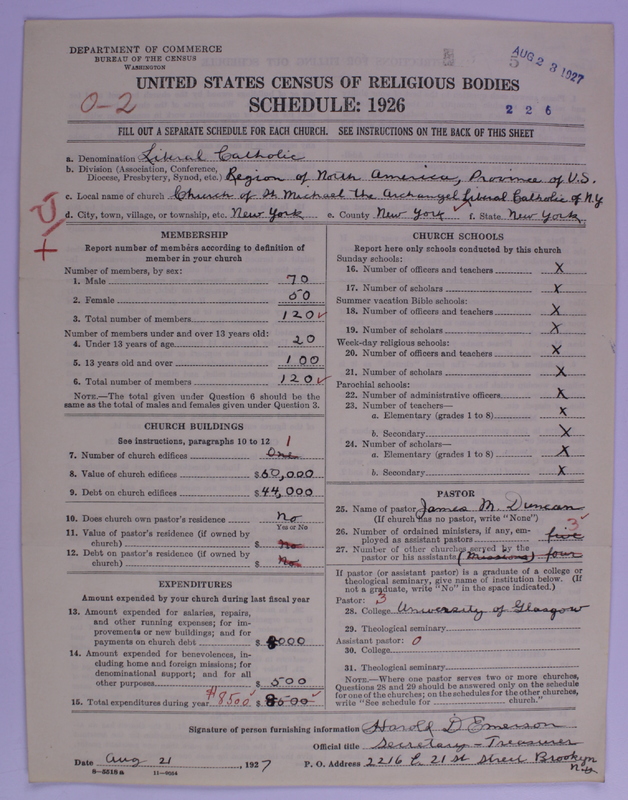 DEPARTMENT OF COMMERCE
BUREAU OF THE CENSUS
WASHINGTON
AUG 23 1927
5
226
0-2
UNITED STATES CENSUS OF RELIGIOUS BODIES
SCHEDULE: 1926
FILL OUT A SEPARATE SCHEDULE FOR EACH CHURCH. SEE INSTRUCTIONS ON THE BACK OF THIS SHEET
a. Denomination Liberal Catholic
b. Division (Association, Conference, Diocese, Presbytery, Synod, etc.) Region of North America, Province of U.S.
c. Local name of church Church of St Michael the Archangel Liberal Catholic of N.Y
d. City, town, village, or township, etc. New York e. County New York f. State New York
U
+
MEMBERSHIP
Report number of members according to definition of
member in your church
Number of members, by sex:
1. Male 70
2. Female 50
3. Total number of members 120 ✓
Number of members under and over 13 years old:
4. Under 13 years of age 20
5. 13 years old and over 100
6. Total number of members 120 ✓
NOTE.—The total given under Question 6 should be
same as the total of males and females given under Question 3.
CHURCH BUILDINGS
See instructions, paragraphs 10 to 12 1
7. Number of church edifices One
8. Value of church edifices $ 60,000
9. Debt on church edifices $ 44,000
10. Does church own pastor's residence No
Yes or No
11. Value of pastor's residence (if owned by
church) $ No
12. Debt on pastor's residence (if owned by
church) $ No
EXPENDITURES
Amount expended by your church during last fiscal year
13. Amount expended for salaries, repairs,
and other running expenses; for im-
provements or new buildings; and for
payments on church debt $ 8000
14. Amount expended for benevolences, in-
cluding home and foreign missions; for
denominational support; and for all
other purposes $ 500
15. Total expenditures during year $8500 ✓ $ 8500 ✓
CHURCH SCHOOLS
Report here only schools conducted by this church
Sunday schools:
16. Number of officers and teachers X
17. Number of scholars X
Summer vacation Bible schools:
18. Number of officers and teachers X
19. Number of scholars X
Week-day religious schools:
20. Number of officers and teachers X
21. Number of scholars X
Parochial schools:
22. Number of administrative officers X
23. Number of teachers—
a. Elementary (grades 1 to 8) X
b. Secondary X
24. Number of scholars—
a. Elementary (grades 1 to 8) X
b. Secondary X
PASTOR
25. Name of pastor James M. Duncan
(If church has no pastor, write "None")
3
26. Number of ordained ministers, if any, em-
ployed as assistant pastors five
27. Number of other churches served by the
pastor or his assistants (Missions) four
If pastor (or assistant pastor) is a graduate of a college or
theological seminary, give name of institution below. (If
not a graduate, write "No" in the space indicated.)
Pastor: 3
28. College University of Glasgow
29. Theological seminary
Assistant pastor: 0
30. College
31. Theological seminary
NOTE.—Where one pastor serves two or more churches,
Questions 28 and 29 should be answered only on the schedule
for one of the churches; on the schedules for the other churches,
write "See schedule for church."
Signature of person furnishing information Harold D Emerson
Official title Secretary - Treasurer
Date Aug 21, 1927 P. O. Address 2216 E 21 st Street Brooklyn
N.Y.
8-5518a 11-9054